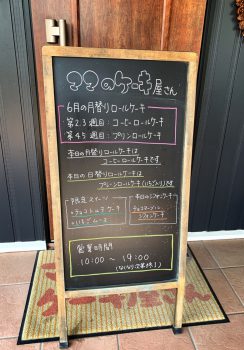 ママのケーキ屋さん
6月の月替りロールケーキ
第2.3週目：コーヒーロールケーキ
第4.5週目：プリンロールケーキ
本日の月替りロールケーキは
コーヒーロールケーキです
本日の日替りロールケーキは
プレーンロールケーキ(いちご入り)です
限定スイーツ
・いちごムース
本日のシフォンケーキ
シフォンケーキ
営業時間
10:00 ～ 19:00
(なくなり次第終了)
ケーキ屋さん